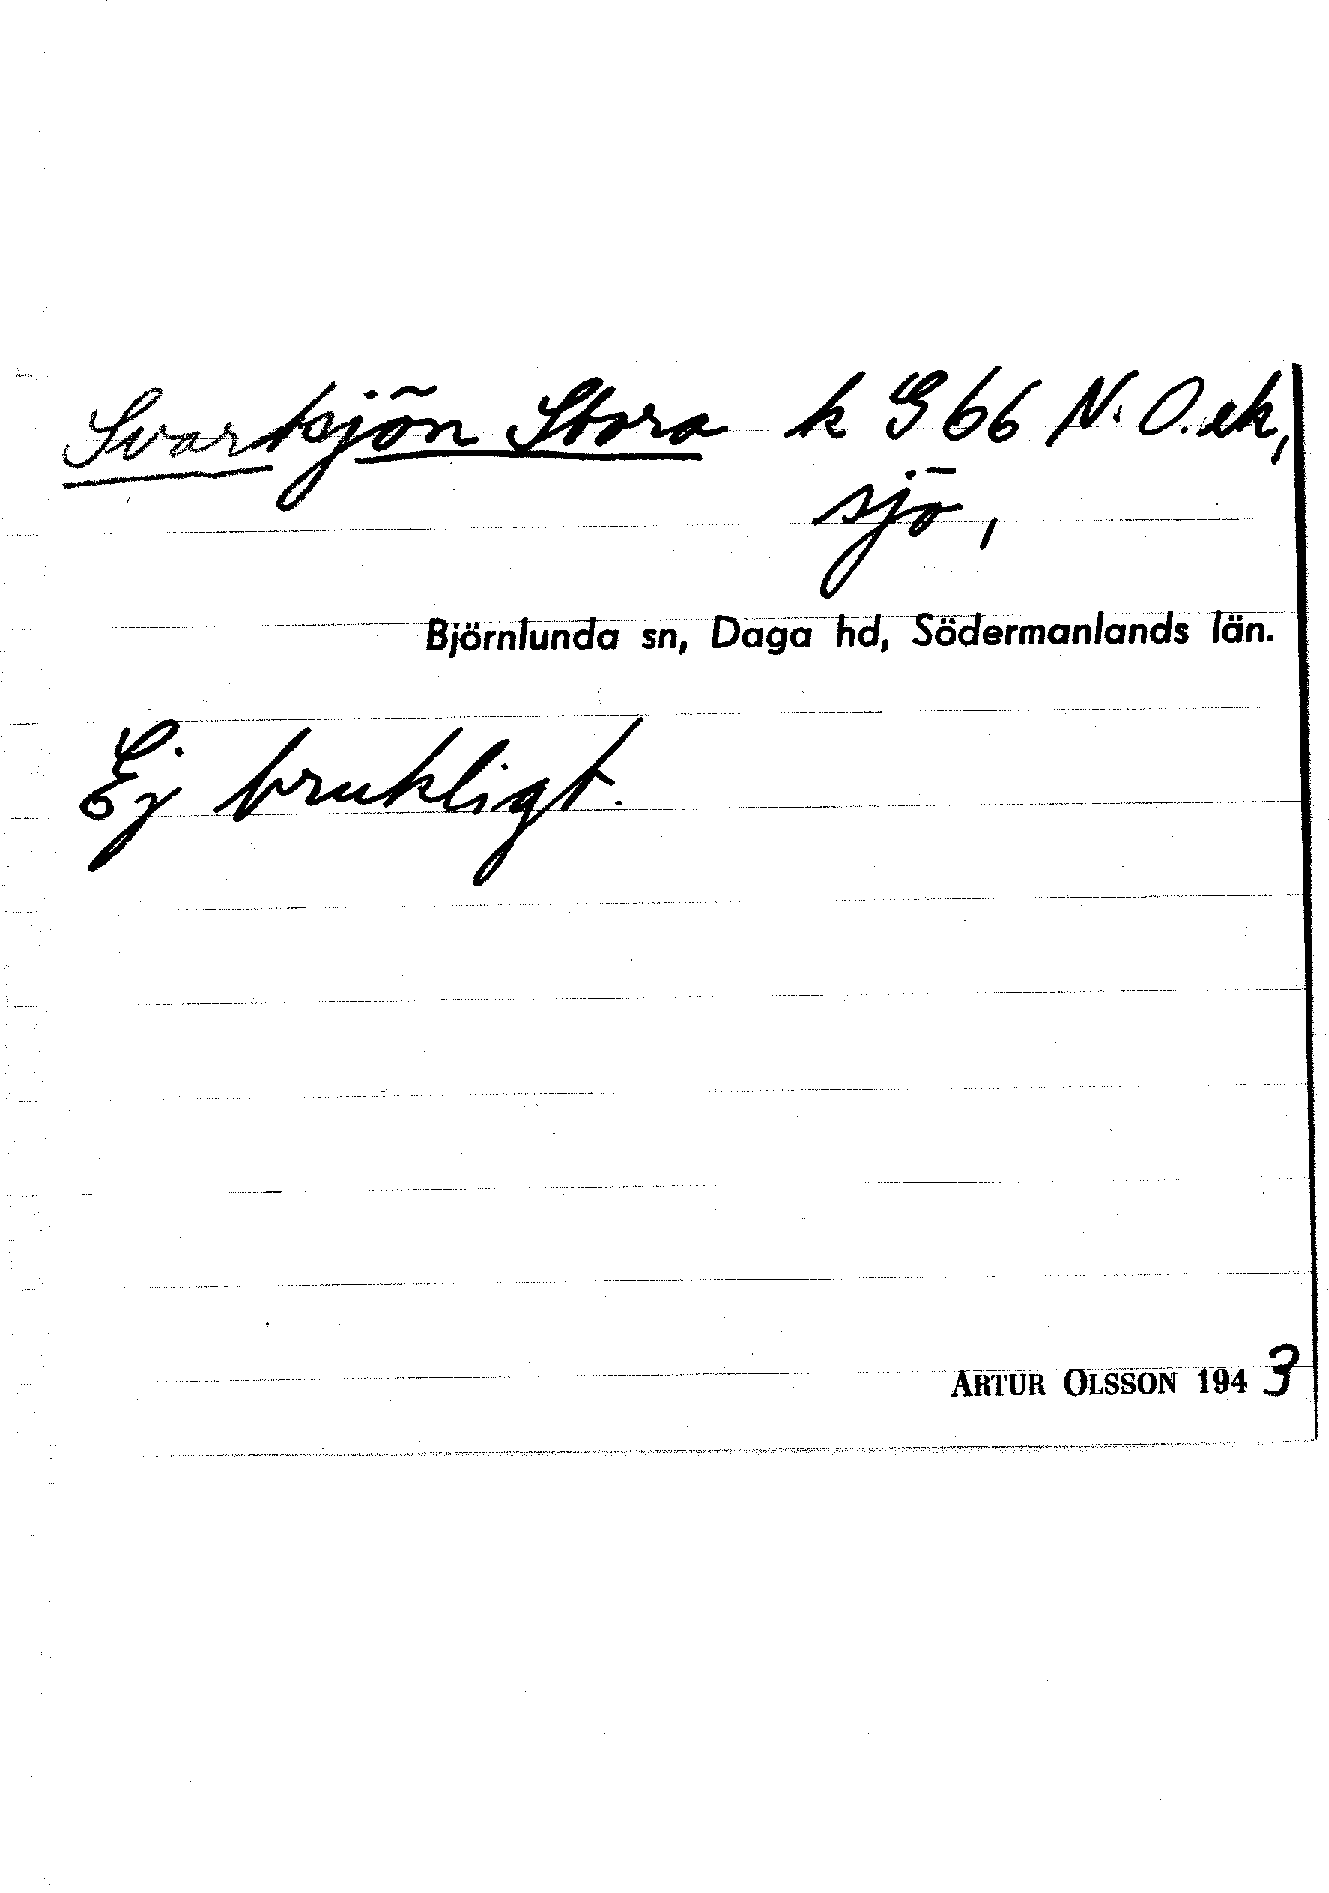 Svartsjön Stora k G 66 N.O. ek,
sjö,
Björnlunda sn, Daga hd, Södermanlands län.
Ej brukligt.
ARTUR OLSSON 1943